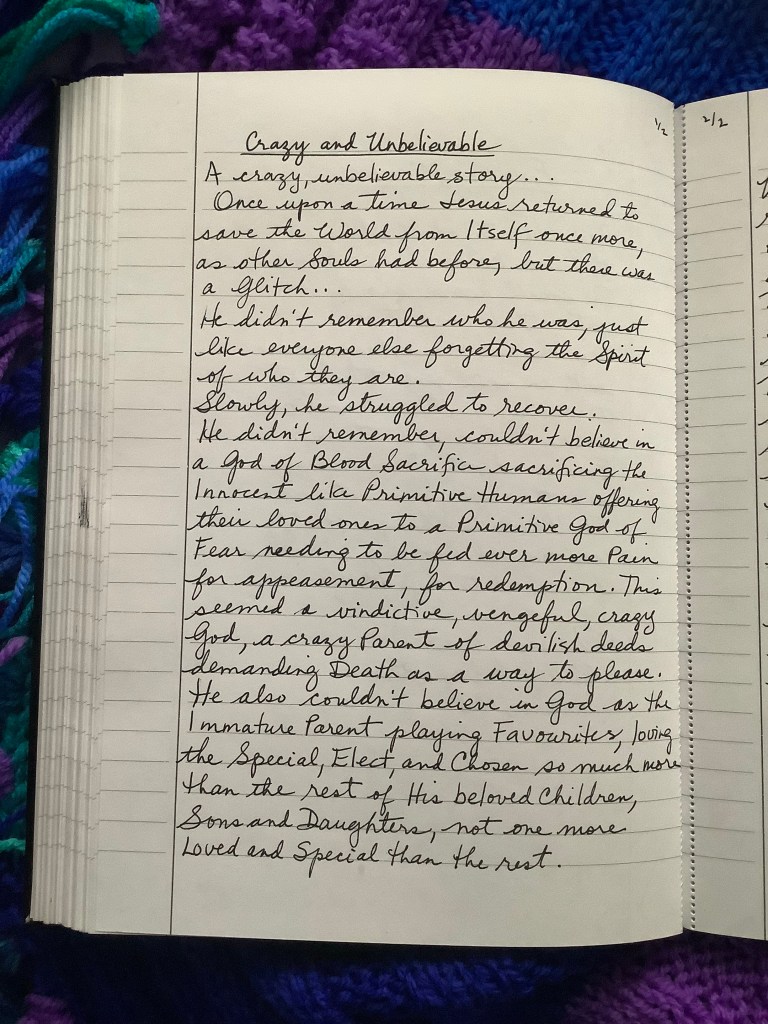 1/2
2/2
Crazy and Unbelievable
A crazy, unbelievable story...
Once upon a time Jesus returned to
save the World from Itself once more,
as other Souls had before, but there was
a Glitch...
He didn't remember who he was, just
like everyone else forgetting the Spirit
of who they are.
Slowly, he struggled to recover.
He didn't remember, couldn't believe in
a God of Blood Sacrifice sacrificing the
Innocent like Primitive Humans offering
their loved ones to a Primitive God of
Fear needing to be fed ever more Pain
for appeasement, for redemption. This
seemed a vindictive, vengeful, crazy
God, a crazy Parent of devilish deeds
demanding Death as a way to please.
He also couldn't believe in God as the
Immature Parent playing Favourites, loving
the Special, Elect, and Chosen so much more
than the rest of His beloved Children,
Sons and Daughters, not one more
Loved and Special than the rest.